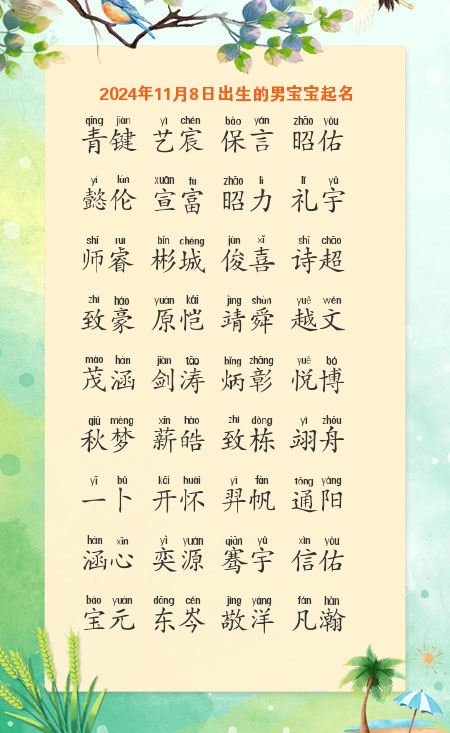 2024年11月8日出生的男宝宝起名
qīng jiàn yì chén bǎo yán zhāo yòu
青键 艺宸 保言 昭佑
yì lún xuān fù zhāo lì lǐ yǔ
懿伦 宣富 昭力 礼宇
shī ruì bīn chéng jùn xǐ shī chāo
师睿 彬城 俊喜 诗超
zhì háo yuán kǎi jìng shùn yuè wén
致豪 原恺 靖舜 越文
mào hán jiàn tāo bǐng zhāng yuè bó
茂涵 剑涛 炳彰 悦博
qiū mèng xīn hào zhì dòng yì zhōu
秋梦 薪皓 致栋 翊舟
yī bǔ kāi huái yì fān tōng yáng
一卜 开怀 羿帆 通阳
hán xīn yì yuán qiān yǔ xìn yòu
涵心 奕源 骞宇 信佑
bǎo yuán dōng cén jìng yáng fán hàn
宝元 东岑 敬洋 凡瀚